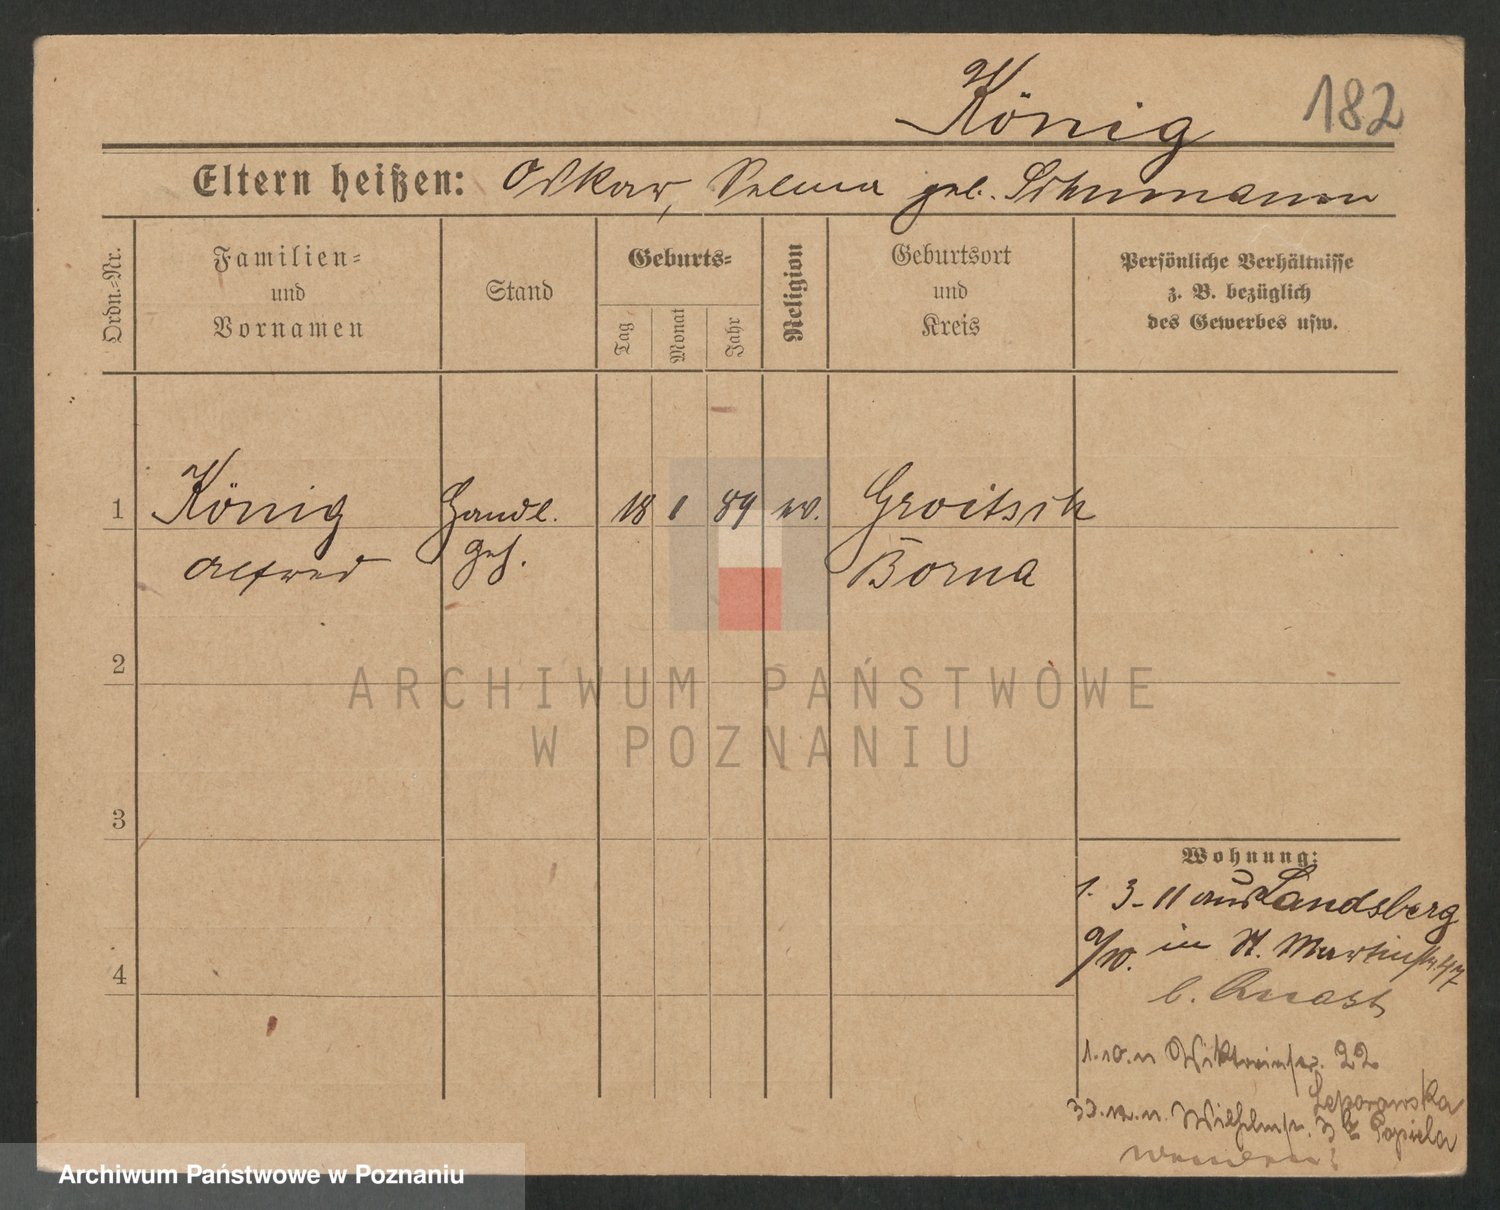 König 182
Eltern heißen: Oskar, Selma geb. Schumann
Ordn.-Nr.
Familien-
und
Vornamen
Stand
Geburts-
Tag
Monat
Jahr
Religion
Geburtsort
und
Kreis
Persönliche Verhältnisse
z. B. bezüglich
des Gewerbes usw.
1 König Handl. 18 1 89 ev. Groitsch
Alfred Geh. Borna
2
ARCHIWUM PAŃSTWOWE
W POZNANIU
3
4
Wohnung:
1. 3. 11 aus Landsberg
a/W. in St. Martinstr. 47
b. Quast
1.10.11 Viktoriastr. 22
Leporowska
30.12.11. Wilhelmstr. b. Popiela
Archiwum Państwowe w Poznaniu